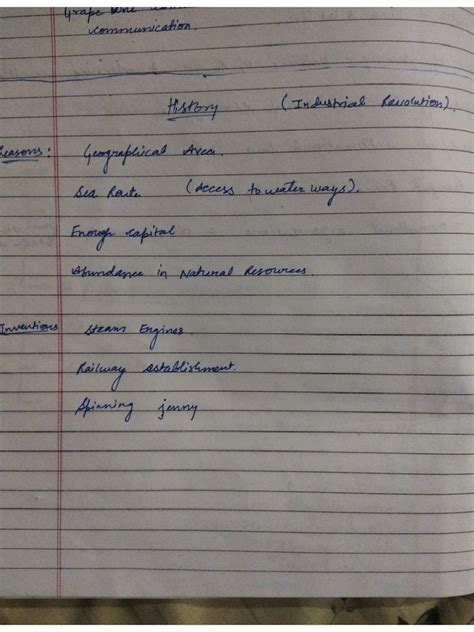 Grape vine
communication.
History (Industrial Revolution).
Reasons: Geographical Area.
Sea Route (Access to water ways).
Enough capital
Abundance in Natural Resources.
Inventions Steam Engines.
Railway establishment.
Spinning jenny